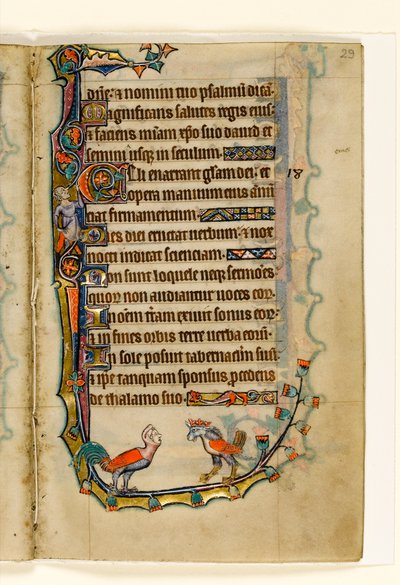 29
dñe: & nomini tuo psalmũ dicã.
Magnificans salutes regis eius:
& faciens mĩam xp̃o suo dauid et
semini usq; in seculum.
Celi enarrant gl̃am dei: et 18
opera manuum eius ãnũ
ciat firmamentum.
Dies diei eructat uerbum: & nox
nocti indicat scienciam.
Non sunt loquele neq; sermões
quor̃ non audiantur uoces eor̃.
In oẽm t̃ram exiuit sonus eor̃:
& in fines orbis terre uerba eor̃.
In sole posuit tabernaclm̃ suũ
& ip̃e tanquam sponsus p̃cedens
de thalamo suo.